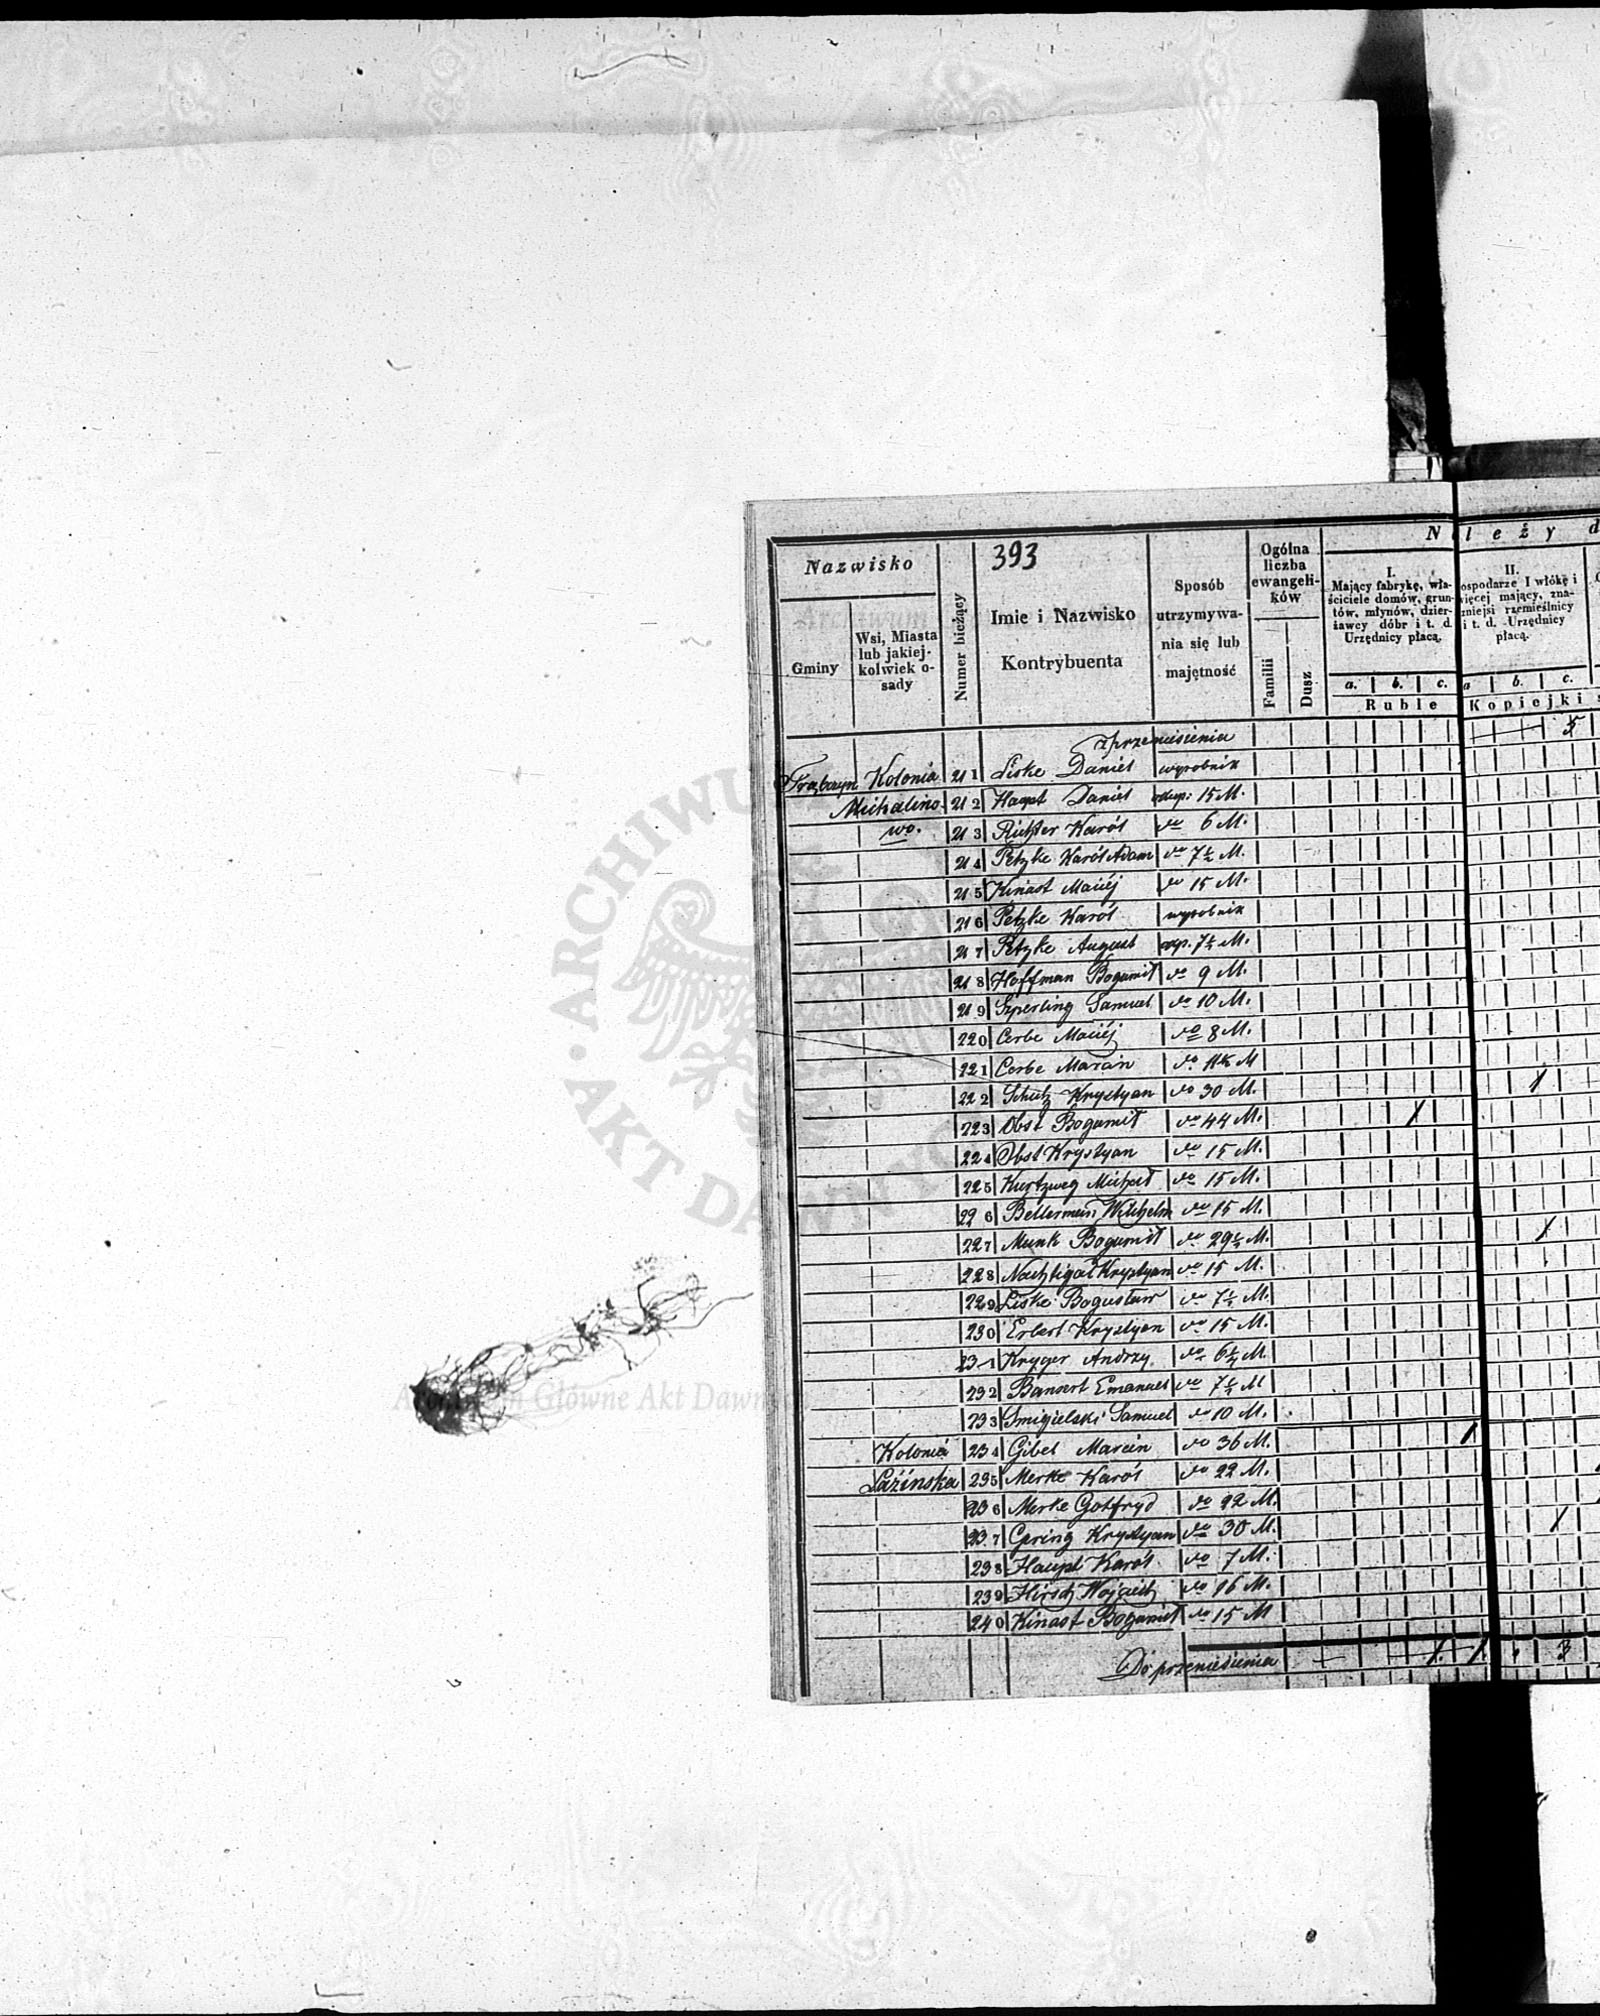 393
Nazwisko
Gminy
Wsi, Miasta
lub jakiej-
kolwiek o-
sady
Numer bieżący
Imie i Nazwisko
Kontrybuenta
Sposób
utrzymywa-
nia się lub
majętność
Ogólna
liczba
ewangeli-
ków
Familii
Dusz
Należy d
I.
Mający fabrykę, wła-
ściciele domów, grun-
tów, młynów, dzier-
żawcy dóbr i t. d.
Urzędnicy płacą.
II.
ospodarze I włókę i
więcej mający, zna-
zniejsi rzemieślnicy
i t. d. Urzędnicy
płacą.
a. b. c. a b. c.
Ruble Kopiejki s
z przeniesienia
Trąbczyn Kolonia 211 Liske Daniel wyrobnik
Michalino- 212 Haupt Daniel okup: 15 M.
wo. 213 Richter Karól do 6 M.
214 Petzke Karól Adam do 7½ M.
215 Kinast Maciéj do 15 M.
216 Petzke Karól wyrobnik
217 Petzke August okup. 7½ M.
218 Hoffman Bogumił do 9 M.
219 Szperling Samuel do 10 M.
220 Cerbe Maciéj do 8 M.
221 Cerbe Marcin do 11½ M
222 Schulz Krystyan do 30 M. 1
223 Obst Bogumił do 44 M. 1
224 Obst Krystyan do 15 M.
225 Kurtzweg Michał do 15 M.
226 Bellerman Wilhelm do 15 M.
227 Munk Bogumił do 29½ M. 1
228 Nachtigal Krystyan do 15 M.
229 Liske Bogusław do 7½ M.
230 Erbert Krystyan do 15 M.
231 Kryger Andrzy do 6½ M.
232 Bansert Emanuel do 7½ M
233 Smigielski Samuel do 10 M.
Kolonia 234 Gibel Marcin do 36 M. 1
Łazińska 235 Merke Karól do 22 M.
236 Merke Gotfryd do 22 M.
237 Gering Krystyan do 30 M. 1
238 Haupt Karól do 7 M.
239 Hirsch Wojciech do 16 M.
240 Kinast Bogumił do 15 M
Do przeniesienia 1. 1. 3
ARCHIWUM
AKT DAWN
Archiwum Główne Akt Dawnych